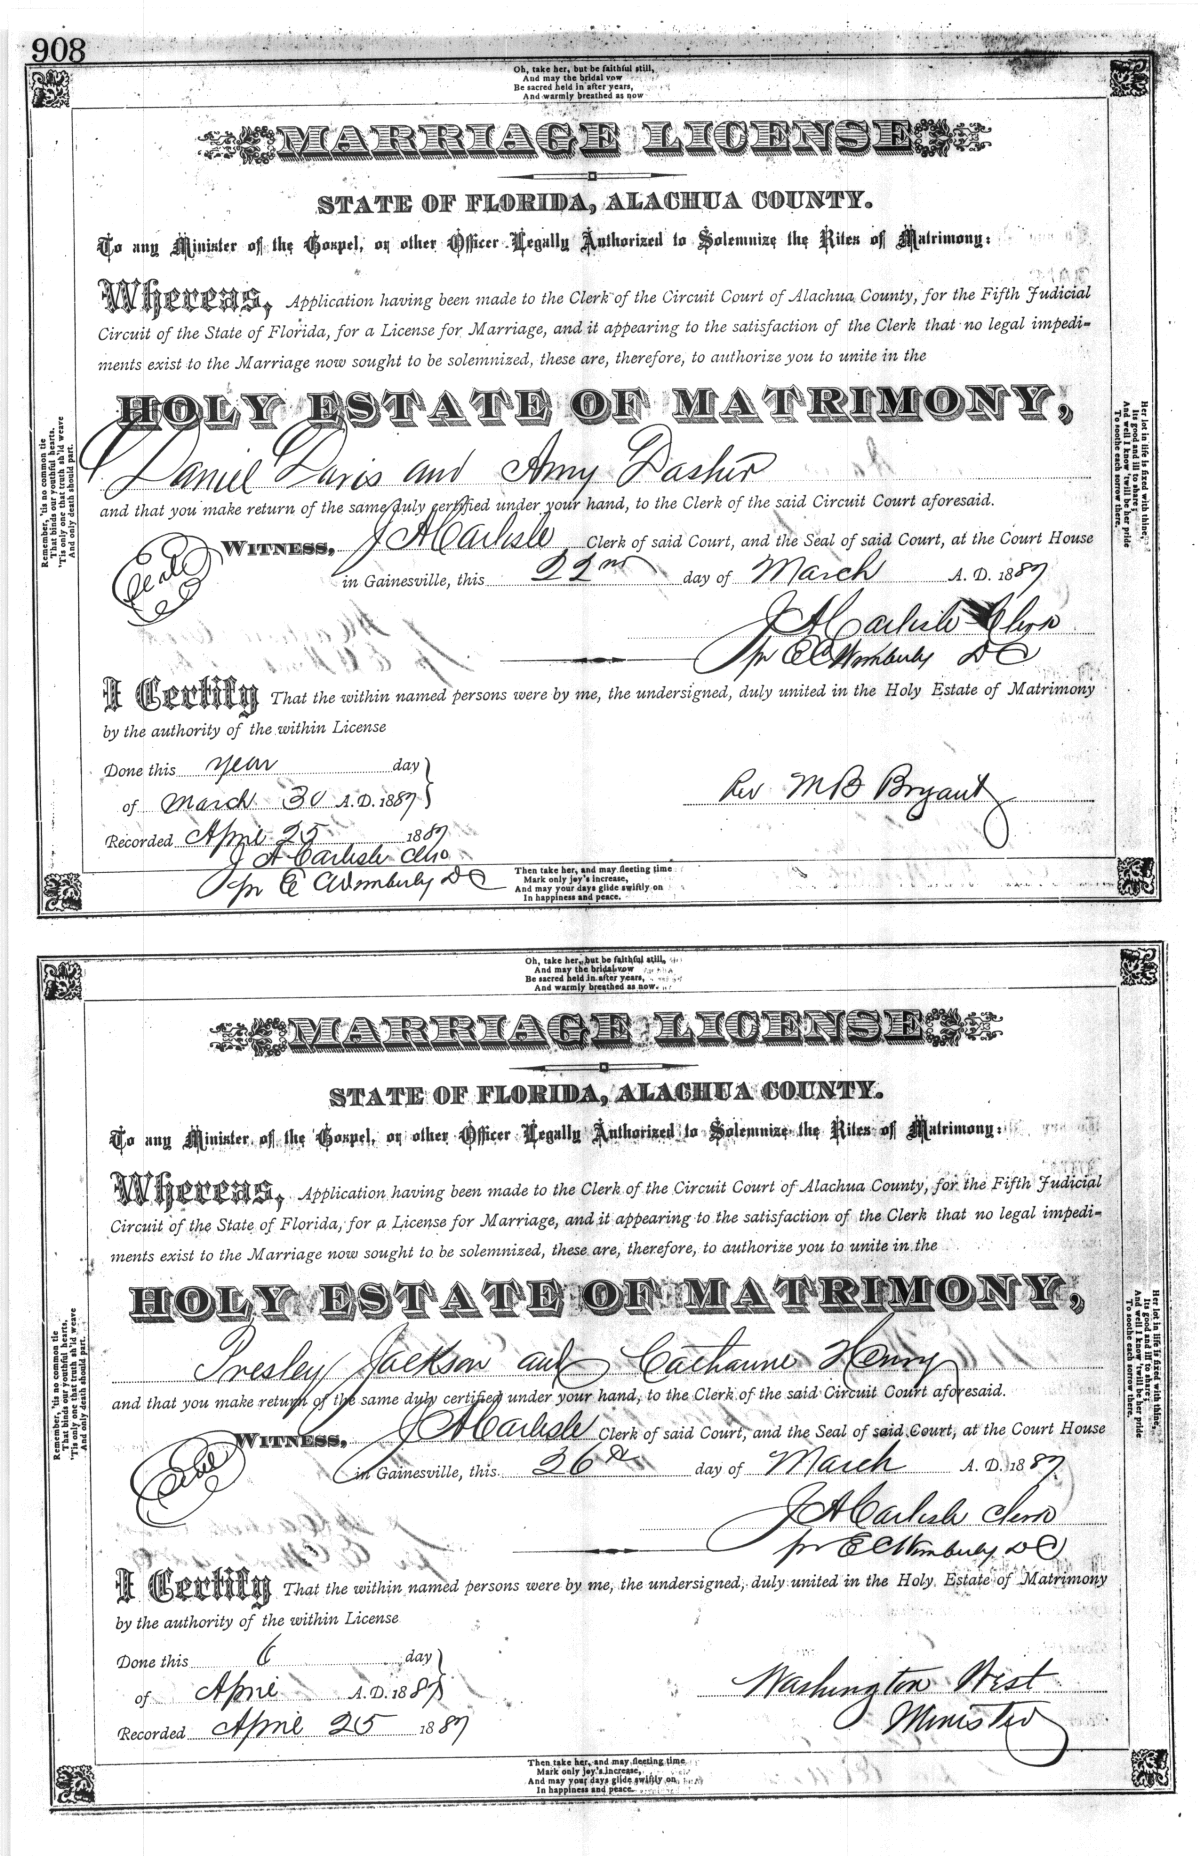 908
Oh, take her, but be faithful still,
And may the bridal vow
Be sacred held in after years,
And warmly breathed as now
MARRIAGE LICENSE
STATE OF FLORIDA, ALACHUA COUNTY.
To any Minister of the Gospel, or other Officer Legally Authorized to Solemnize the Rites of Matrimony:
Whereas, Application having been made to the Clerk of the Circuit Court of Alachua County, for the Fifth Judicial
Circuit of the State of Florida, for a License for Marriage, and it appearing to the satisfaction of the Clerk that no legal impedi-
ments exist to the Marriage now sought to be solemnized, these are, therefore, to authorize you to unite in the
HOLY ESTATE OF MATRIMONY,
Daniel Davis and Amy Dasher
and that you make return of the same duly certified under your hand, to the Clerk of the said Circuit Court aforesaid.
WITNESS, J A Carlisle Clerk of said Court, and the Seal of said Court, at the Court House
Seal
in Gainesville, this 22nd day of March A. D. 1887
J A Carlisle Clerk
pr E C Wimberly DC
I Certify That the within named persons were by me, the undersigned, duly united in the Holy Estate of Matrimony
by the authority of the within License
Done this year day
of March 30 A.D. 1887
Rev M B Bryant
Recorded April 25 1887
J A Carlisle Clk
pr E C Wimberly DC
Then take her, and may fleeting time
Mark only joy's increase,
And may your days glide swiftly on
In happiness and peace.
Remember, 'tis no common tie
That binds our youthful hearts,
'Tis only one that truth sh'ld weave
And only death should part.
Her lot in life is fixed with thine,
Its good and ill to share;
And well I know 'twill be her pride
To soothe each sorrow there.
Oh, take her, but be faithful still,
And may the bridal vow
Be sacred held in after years,
And warmly breathed as now.
MARRIAGE LICENSE
STATE OF FLORIDA, ALACHUA COUNTY.
To any Minister of the Gospel, or other Officer Legally Authorized to Solemnize the Rites of Matrimony:
Whereas, Application having been made to the Clerk of the Circuit Court of Alachua County, for the Fifth Judicial
Circuit of the State of Florida, for a License for Marriage, and it appearing to the satisfaction of the Clerk that no legal impedi-
ments exist to the Marriage now sought to be solemnized, these are, therefore, to authorize you to unite in the
HOLY ESTATE OF MATRIMONY,
Presley Jackson and Catharine Henry
and that you make return of the same duly certified under your hand, to the Clerk of the said Circuit Court aforesaid.
WITNESS, J A Carlisle Clerk of said Court, and the Seal of said Court, at the Court House
Seal
in Gainesville, this 26th day of March A. D. 1887
J A Carlisle Clerk
pr E C Wimberly DC
I Certify That the within named persons were by me, the undersigned, duly united in the Holy Estate of Matrimony
by the authority of the within License
Done this 6 day
of April A.D. 1887
Washington West
Minister
Recorded April 25 1887
Then take her, and may fleeting time
Mark only joy's increase,
And may your days glide swiftly on
In happiness and peace.
Remember, 'tis no common tie
That binds our youthful hearts,
'Tis only one that truth sh'ld weave
And only death should part.
Her lot in life is fixed with thine,
Its good and ill to share;
And well I know 'twill be her pride
To soothe each sorrow there.